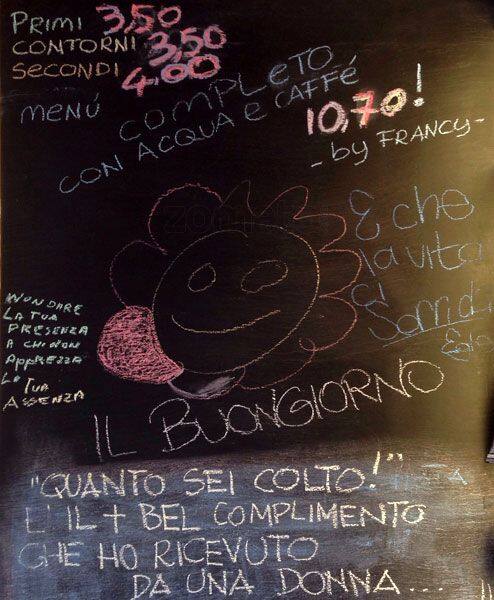 PRIMI 3,50
CONTORNI 3,50
SECONDI 4,00
MENÚ COMPLETO
CON ACQUA E CAFFÉ
10,70!
- by FRANCY -
E che
la vita
ci
Sorrida
NON DARE
LA TUA
PRESENZA
A CHI NON
APPREZZA
LA TUA
ASSENZA
IL BUONGIORNO
"QUANTO SEI COLTO!"
L'IL + BEL COMPLIMENTO
CHE HO RICEVUTO
DA UNA DONNA...